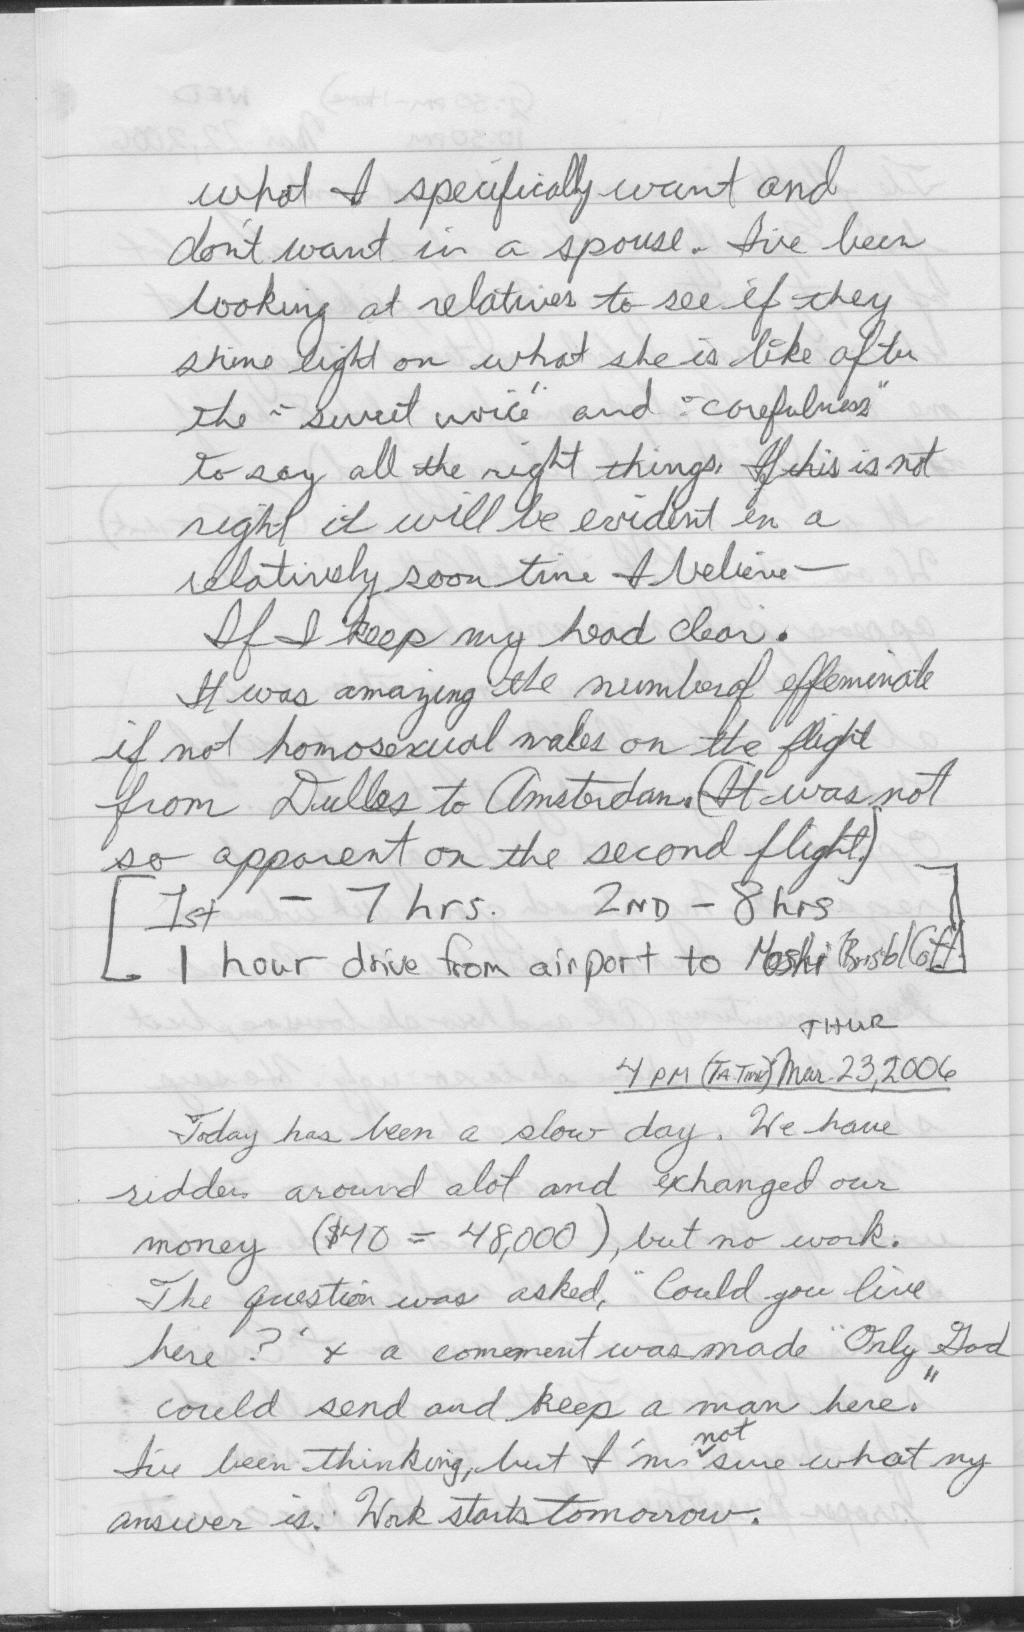 what I specifically want and
don't want in a spouse. I've been
looking at relatives to see if they
shine light on what she is like after
the "sweet voice" and "carefulness"
to say all the right things. If this is not
right it will be evident in a
relatively soon time I believe—
If I keep my head clear.
It was amazing the number of effeminate
if not homosexual males on the flight
from Dulles to Amsterdam. (It was not
so apparent on the second flight.)
[1st - 7 hrs. 2ND - 8 hrs
1 hour drive from airport to Moshi]
THUR
4 PM Mar. 23, 2006
Today has been a slow day. We have
ridden around alot and exchanged our
money ($40 = 48,000), but no work.
The question was asked, "Could you live
here?" & a comement was made "Only God
could send and keep a man here."
I've been thinking, but I'm not sure what my
answer is. Work starts tomorrow.